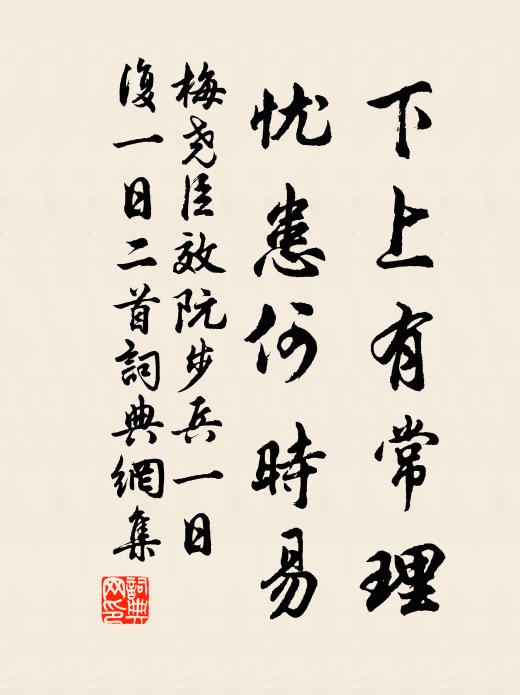 下上有常理
忧患何時易
梅尧臣效阮步兵一日
復一日二首詞典網集
詞典网印